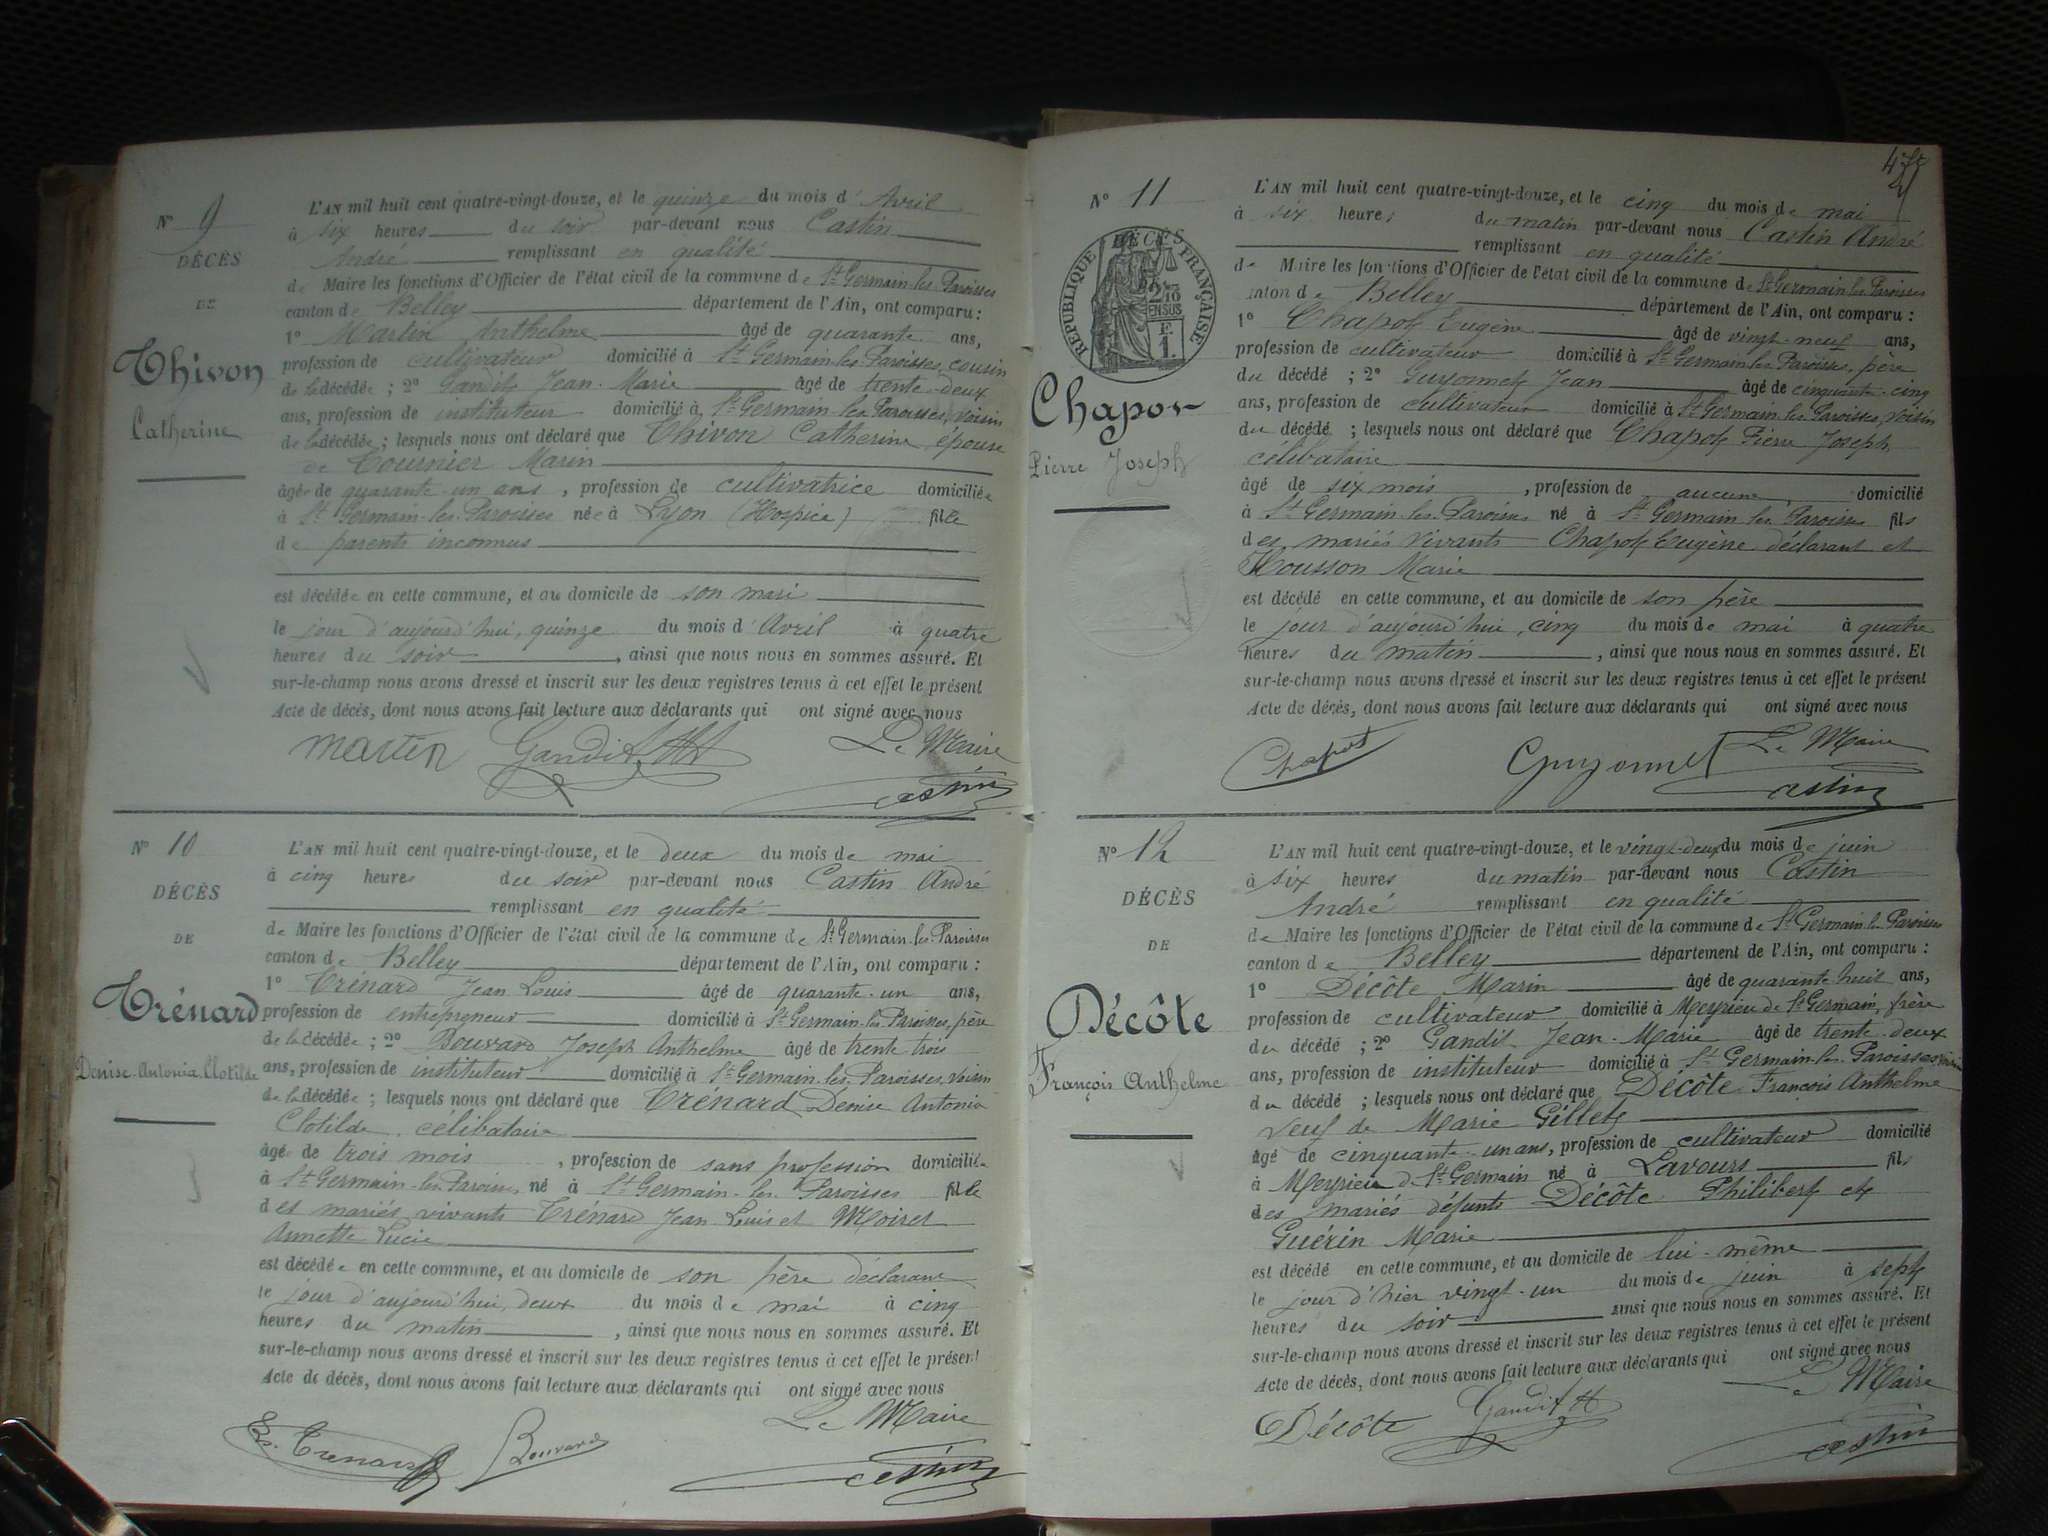 N° 9
DÉCÈS
DE
Thivon
Catherine
L'AN mil huit cent quatre-vingt-douze, et le quinze du mois d'Avril
à six heures du soir par-devant nous Castin
André remplissant en qualité
de Maire les fonctions d'Officier de l'état civil de la commune de St Germain-les-Paroisses
canton de Belley département de l'Ain, ont comparu :
1° Martin Anthelme âgé de quarante ans,
profession de cultivateur domicilié à St Germain-les-Paroisses, cousin
de la décédée ; 2° Gandit Jean-Marie âgé de trente-deux
ans, profession de instituteur domicilié à St Germain-les-Paroisses, voisin
de la décédée ; lesquels nous ont déclaré que Thivon Catherine, épouse
de Tournier Marin
âgée de quarante-un ans, profession de cultivatrice domiciliée
à St Germain-les-Paroisses née à Lyon (Hospice) fille
de parents inconnus
est décédée en cette commune, et au domicile de son mari
le jour d'aujourd'hui, quinze du mois d'Avril à quatre
heures du soir, ainsi que nous nous en sommes assuré. Et
sur-le-champ nous avons dressé et inscrit sur les deux registres tenus à cet effet le présent
Acte de décès, dont nous avons fait lecture aux déclarants qui ont signé avec nous
Martin Gandit Le Maire
Castin
N° 10
DÉCÈS
DE
Trénard
Denise-Antonia-Clotilde
L'AN mil huit cent quatre-vingt-douze, et le deux du mois de mai
à cinq heures du soir par-devant nous Castin André
remplissant en qualité
de Maire les fonctions d'Officier de l'état civil de la commune de St Germain-les-Paroisses
canton de Belley département de l'Ain, ont comparu :
1° Trénard Jean Louis âgé de quarante-un ans,
profession de entrepreneur domicilié à St Germain-les-Paroisses, père
de la décédée ; 2° Bouvard Joseph Anthelme âgé de trente trois
ans, profession de instituteur domicilié à St Germain-les-Paroisses, voisin
de la décédée ; lesquels nous ont déclaré que Trénard Denise Antonia
Clotilde, célibataire
âgée de trois mois, profession de sans profession domiciliée
à St Germain-les-Paroisses né à St Germain-les-Paroisses fille
des mariés vivants Trénard Jean Louis et Moiret
Annette Lucie
est décédée en cette commune, et au domicile de son père déclarant
le jour d'aujourd'hui, deux du mois de mai à cinq
heures du matin, ainsi que nous nous en sommes assuré. Et
sur-le-champ nous avons dressé et inscrit sur les deux registres tenus à cet effet le présent
Acte de décès, dont nous avons fait lecture aux déclarants qui ont signé avec nous
Trénard Bouvard Le Maire
Castin
N° 11
RÉPUBLIQUE FRANÇAISE
2/10 EN SUS
F. 1.
DÉCÈS
Chapot
Pierre Joseph
L'AN mil huit cent quatre-vingt-douze, et le cinq du mois de mai
à six heures du matin par-devant nous Castin André
remplissant en qualité
de Maire les fonctions d'Officier de l'état civil de la commune de St Germain-les-Paroisses
canton de Belley département de l'Ain, ont comparu :
1° Chapot Eugène âgé de vingt-neuf ans,
profession de cultivateur domicilié à St Germain-les-Paroisses, père
du décédé ; 2° Guyonnet Jean âgé de cinquante-cinq
ans, profession de cultivateur domicilié à St Germain-les-Paroisses, voisin
du décédé ; lesquels nous ont déclaré que Chapot Pierre Joseph
célibataire
âgé de six mois, profession de aucune, domicilié
à St Germain-les-Paroisses né à St Germain-les-Paroisses fils
des mariés vivants Chapot Eugène, déclarant et
Housson Marie
est décédé en cette commune, et au domicile de son père
le jour d'aujourd'hui, cinq du mois de mai à quatre
heures du matin, ainsi que nous nous en sommes assuré. Et
sur-le-champ nous avons dressé et inscrit sur les deux registres tenus à cet effet le présent
Acte de décès, dont nous avons fait lecture aux déclarants qui ont signé avec nous
Chapot Guyonnet Le Maire
Castin
N° 12
DÉCÈS
DE
Décôte
François Anthelme
L'AN mil huit cent quatre-vingt-douze, et le vingt-deux du mois de juin
à six heures du matin par-devant nous Castin
André remplissant en qualité
de Maire les fonctions d'Officier de l'état civil de la commune de St Germain-les-Paroisses
canton de Belley département de l'Ain, ont comparu :
1° Décôte Marin âgé de quarante huit ans,
profession de cultivateur domicilié à Meyrieu de St Germain, frère
du décédé ; 2° Gandit Jean-Marie âgé de trente-deux
ans, profession de instituteur domicilié à St Germain-les-Paroisses, voisin
du décédé ; lesquels nous ont déclaré que Décôte François Anthelme
veuf de Marie Gillet
âgé de cinquante-un ans, profession de cultivateur domicilié
à Meyrieu de St Germain né à Lavours fils
des mariés défunts Décôte Philibert et
Guérin Marie
est décédé en cette commune, et au domicile de lui-même
le jour d'hier vingt-un du mois de juin à sept
heures du soir ainsi que nous nous en sommes assuré. Et
sur-le-champ nous avons dressé et inscrit sur les deux registres tenus à cet effet le présent
Acte de décès, dont nous avons fait lecture aux déclarants qui ont signé avec nous
Décôte Gandit Le Maire
Castin